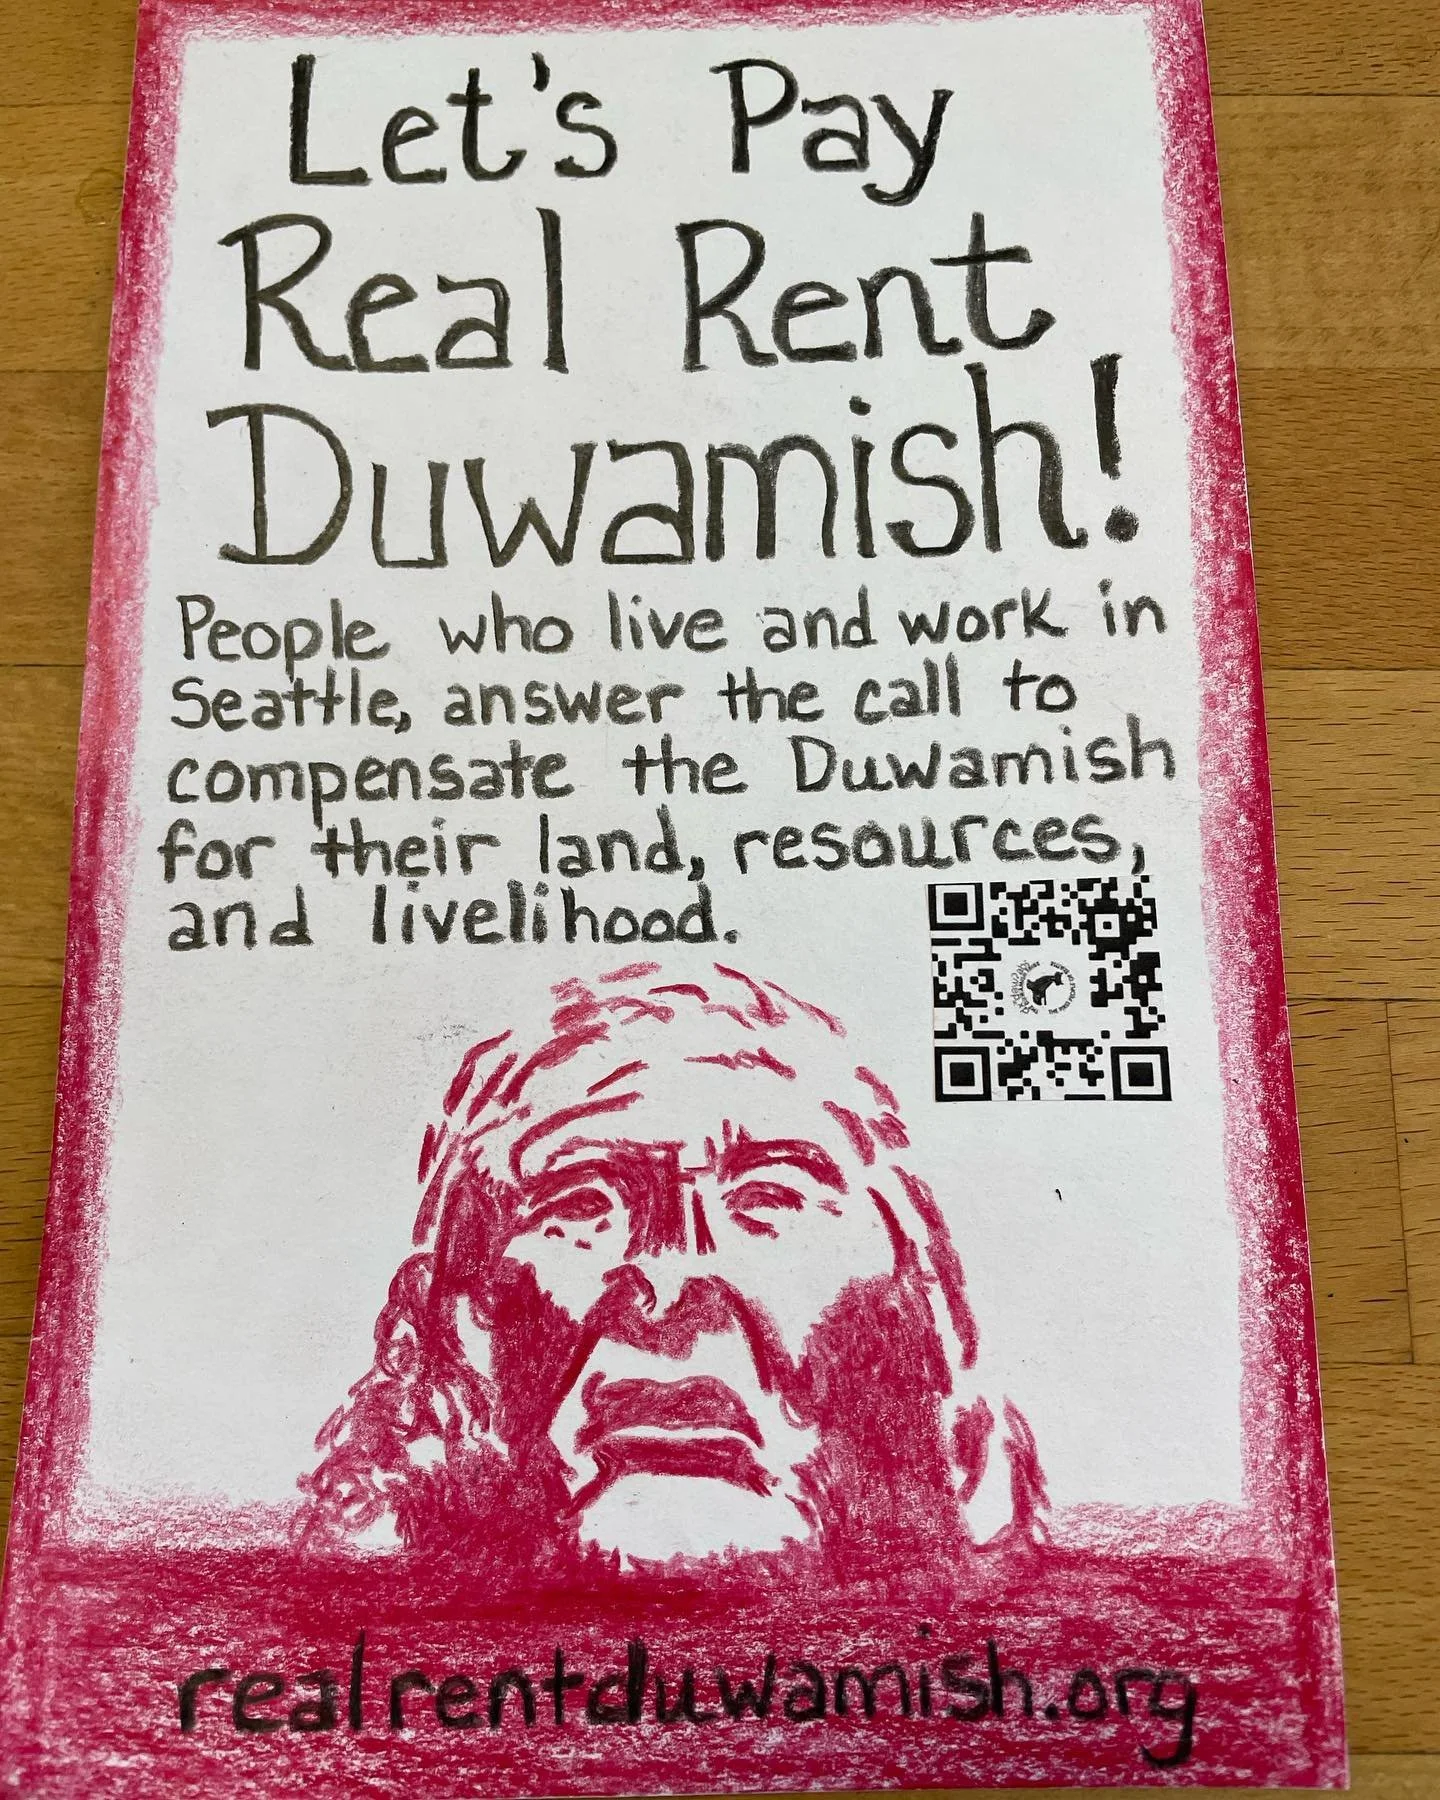 Let's Pay
Real Rent
Duwamish!
People who live and work in
Seattle, answer the call to
compensate the Duwamish
for their land, resources,
and livelihood.
realrentduwamish.org